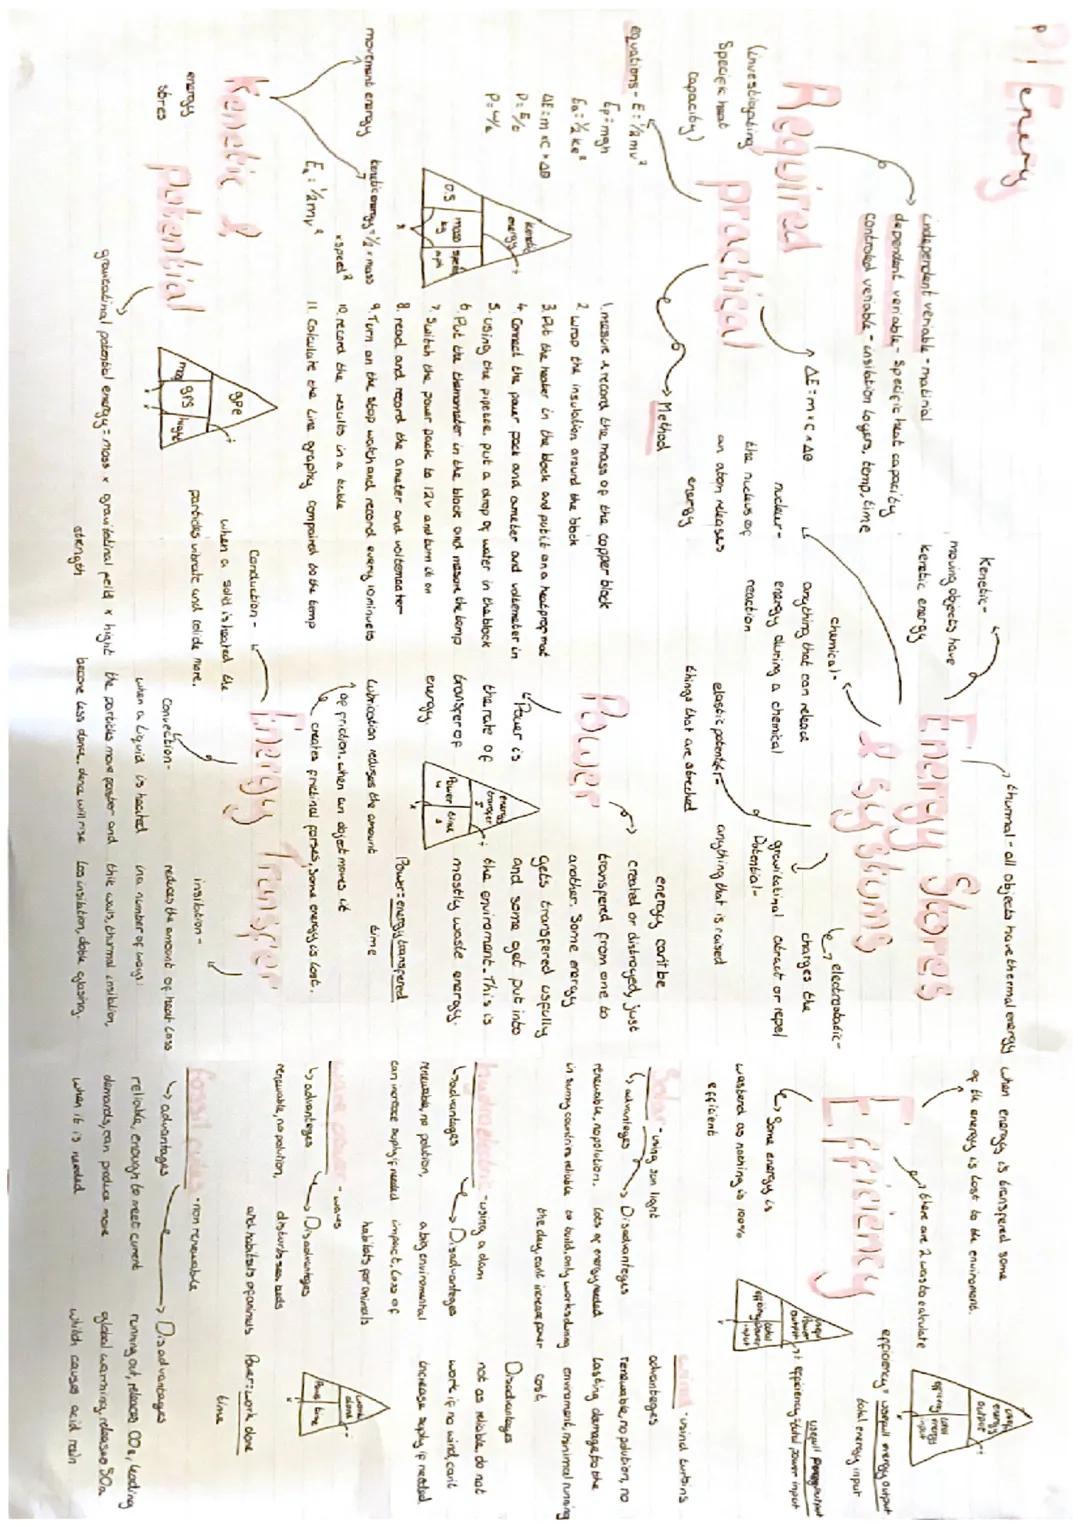 P1 Energy
independent veriable - matirial
dependent veriable - specific heat capacity
controled veriable - insilation layers, temp, time
Required
practical
(investigating
specific heat
capacity)
ΔE = m × c × Δθ
equations - E = ½mv²
Ep = mgh
Ee = ½ke²
ΔE = m × C × Δθ
P = E/t
P = w/t
Method
1. mesure & record the mass of the copper block
2. wrap the insulation around the block
3. Put the heater in the block and put it on a heatproof mat
4. Connect the power pack and ameter and voltemeter in
5. using the pipette, put a drop of water in the block
6. Put the thermometer in the block and mesure the temp
7. Switch the power pack to 12v and turn it on
8. read and record the ameter and voltemeater
9. Turn on the stop watch and record every 10 minuets
10. record the results in a table
11. Calculate the line graphy compaired to the temp
kenetic energy
0.5
mass kg
speed
Kenetic &
potential
movement energy
energy stores
kenetic energy = ½ × mass
× speed²
Eₖ = ½mv²
gpe
mass
gfs
height
gravitatinal potential energy = mass × gravitatinal feild × hight
strength
Energy Stores
& systioms
thurmal - all objects have thermal energy
Kenetic -
moving objects have
kenetic energy
chemical -
anything that can release
energy during a chemical
reaction
nuclear -
the nucleus of
an atom releases
energy
elastic potential -
things that are streched
gravitatinal
Potential -
anything that is raised
electrostatic -
charges the
atract or repel
Power
Power is
the rate of
transfer of
energy
energy transfer
Power w
time s
Power = energy transfered
time
energy can't be
created or distroyed, just
transfered from one to
another. Some energy
gets transfered usfully
and some get put into
the enviroment. This is
mostly waste energy.
Energy Transfer
Lubrication reduses the amount
of friction. when an object moves it
creates frictinal forses, some energy is lost.
Conduction -
when a solid is heated the
particles vibrate and colide more.
Convection -
when a liquid is heated
the particles move faster and
become less dence. dence will rise
insilation -
reduces the amount of heat loss
in a number of ways:
thik walls, thurmal insilation,
loo insilation, doble glasing.
Efficiency
when energy is transfered some
of the energy is lost to the enviroment.
there are 2 was to calculate
Some energy is
wasterd as nothing is 100%
efficient
efficiency = usefull energy output
total energy input
efficiency = usefull power output
total power input
Solar - using sun light
advantages
renewable, no polution.
in sunny countris reliable
Disadvantages
lots of energy needed
to build, only works during
the day, cant increase power
wind - wind turbins
advantages
renewable, no polution, no
lasting damage to the
enviroment, minimal running
cost
Disadvantages
not as reliable, do not
work if no wind, cant
increase suply if needed
hydroelectric - using a dam
advantages
renewable, no polution,
can increase suply if needed
Disadvantages
a big enviromental
impact, loss of
habitats for animals
wave power - waves
advantages
renewable, no polution,
Disadvantages
disturbs sea beds
and habitats of animals
work done
Power
time
Power = work done
time
fossil fules - non renewable
advantages
reliable, enough to meet current
demands, can produce more
when it is needed
Disadvantages
running out, releaces CO₂, leading
global warming, releases SO₂
which causes acid rain